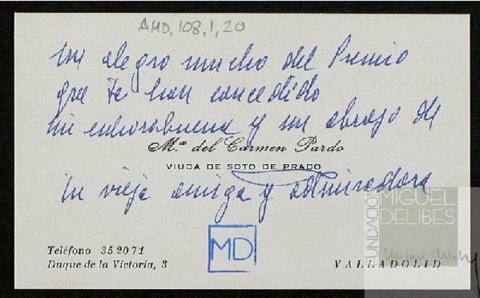 AMD, 108, 1, 20
Me alegro mucho del Premio
que te han concedido
Mi enhorabuena y un abrazo de
M.ª del Carmen Pardo
VIUDA DE SOTO DE PRADO
tu vieja amiga y admiradora
FUNDACIÓN
MIGUEL
DELIBES
MD
Teléfono 352071
Duque de la Victoria, 3
VALLADOLID